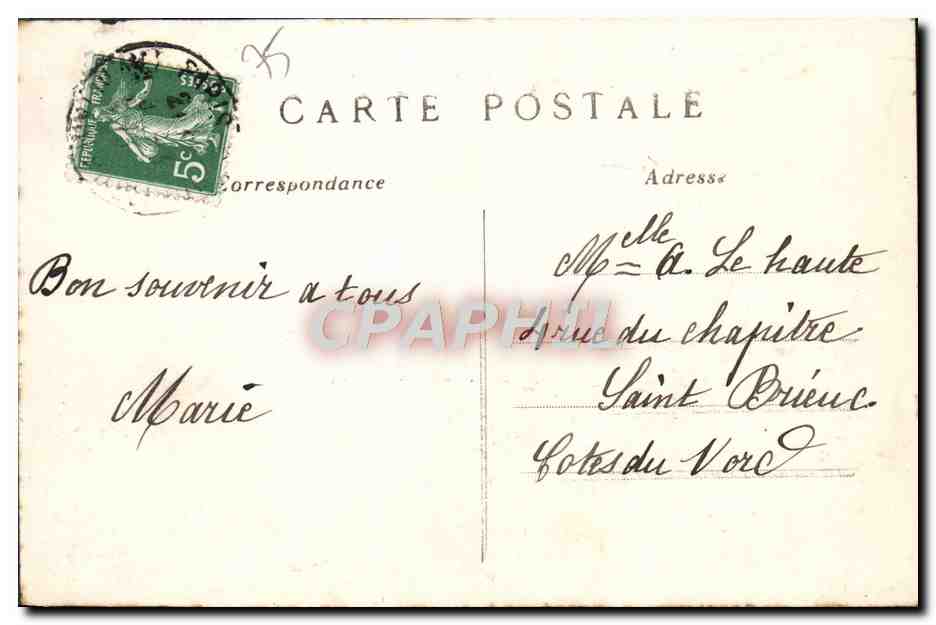 CARTE POSTALE
Correspondance
Adresse
RÉPUBLIQUE FRANÇAISE
POSTES
5c
Bon souvenir a tous
Marie
Melle A. Le haute
4 rue du chapitre
Saint Brieuc.
Cotes du Nord
CPAPHIL